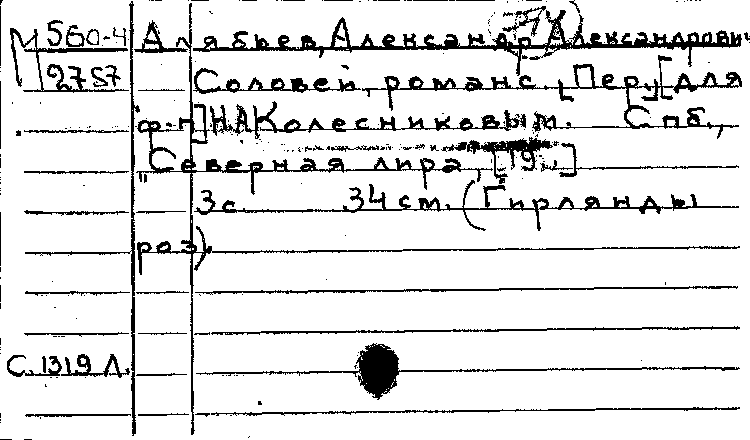 М 560-4
2757
Алябьев, Александр Александрович
Соловей, романс. [Пер.] [для
ф-п] Н А Колесниковым. Спб.,
"Северная лира",
3с. 34 см. (Гирлянды
роз).
С. 1319 Л.